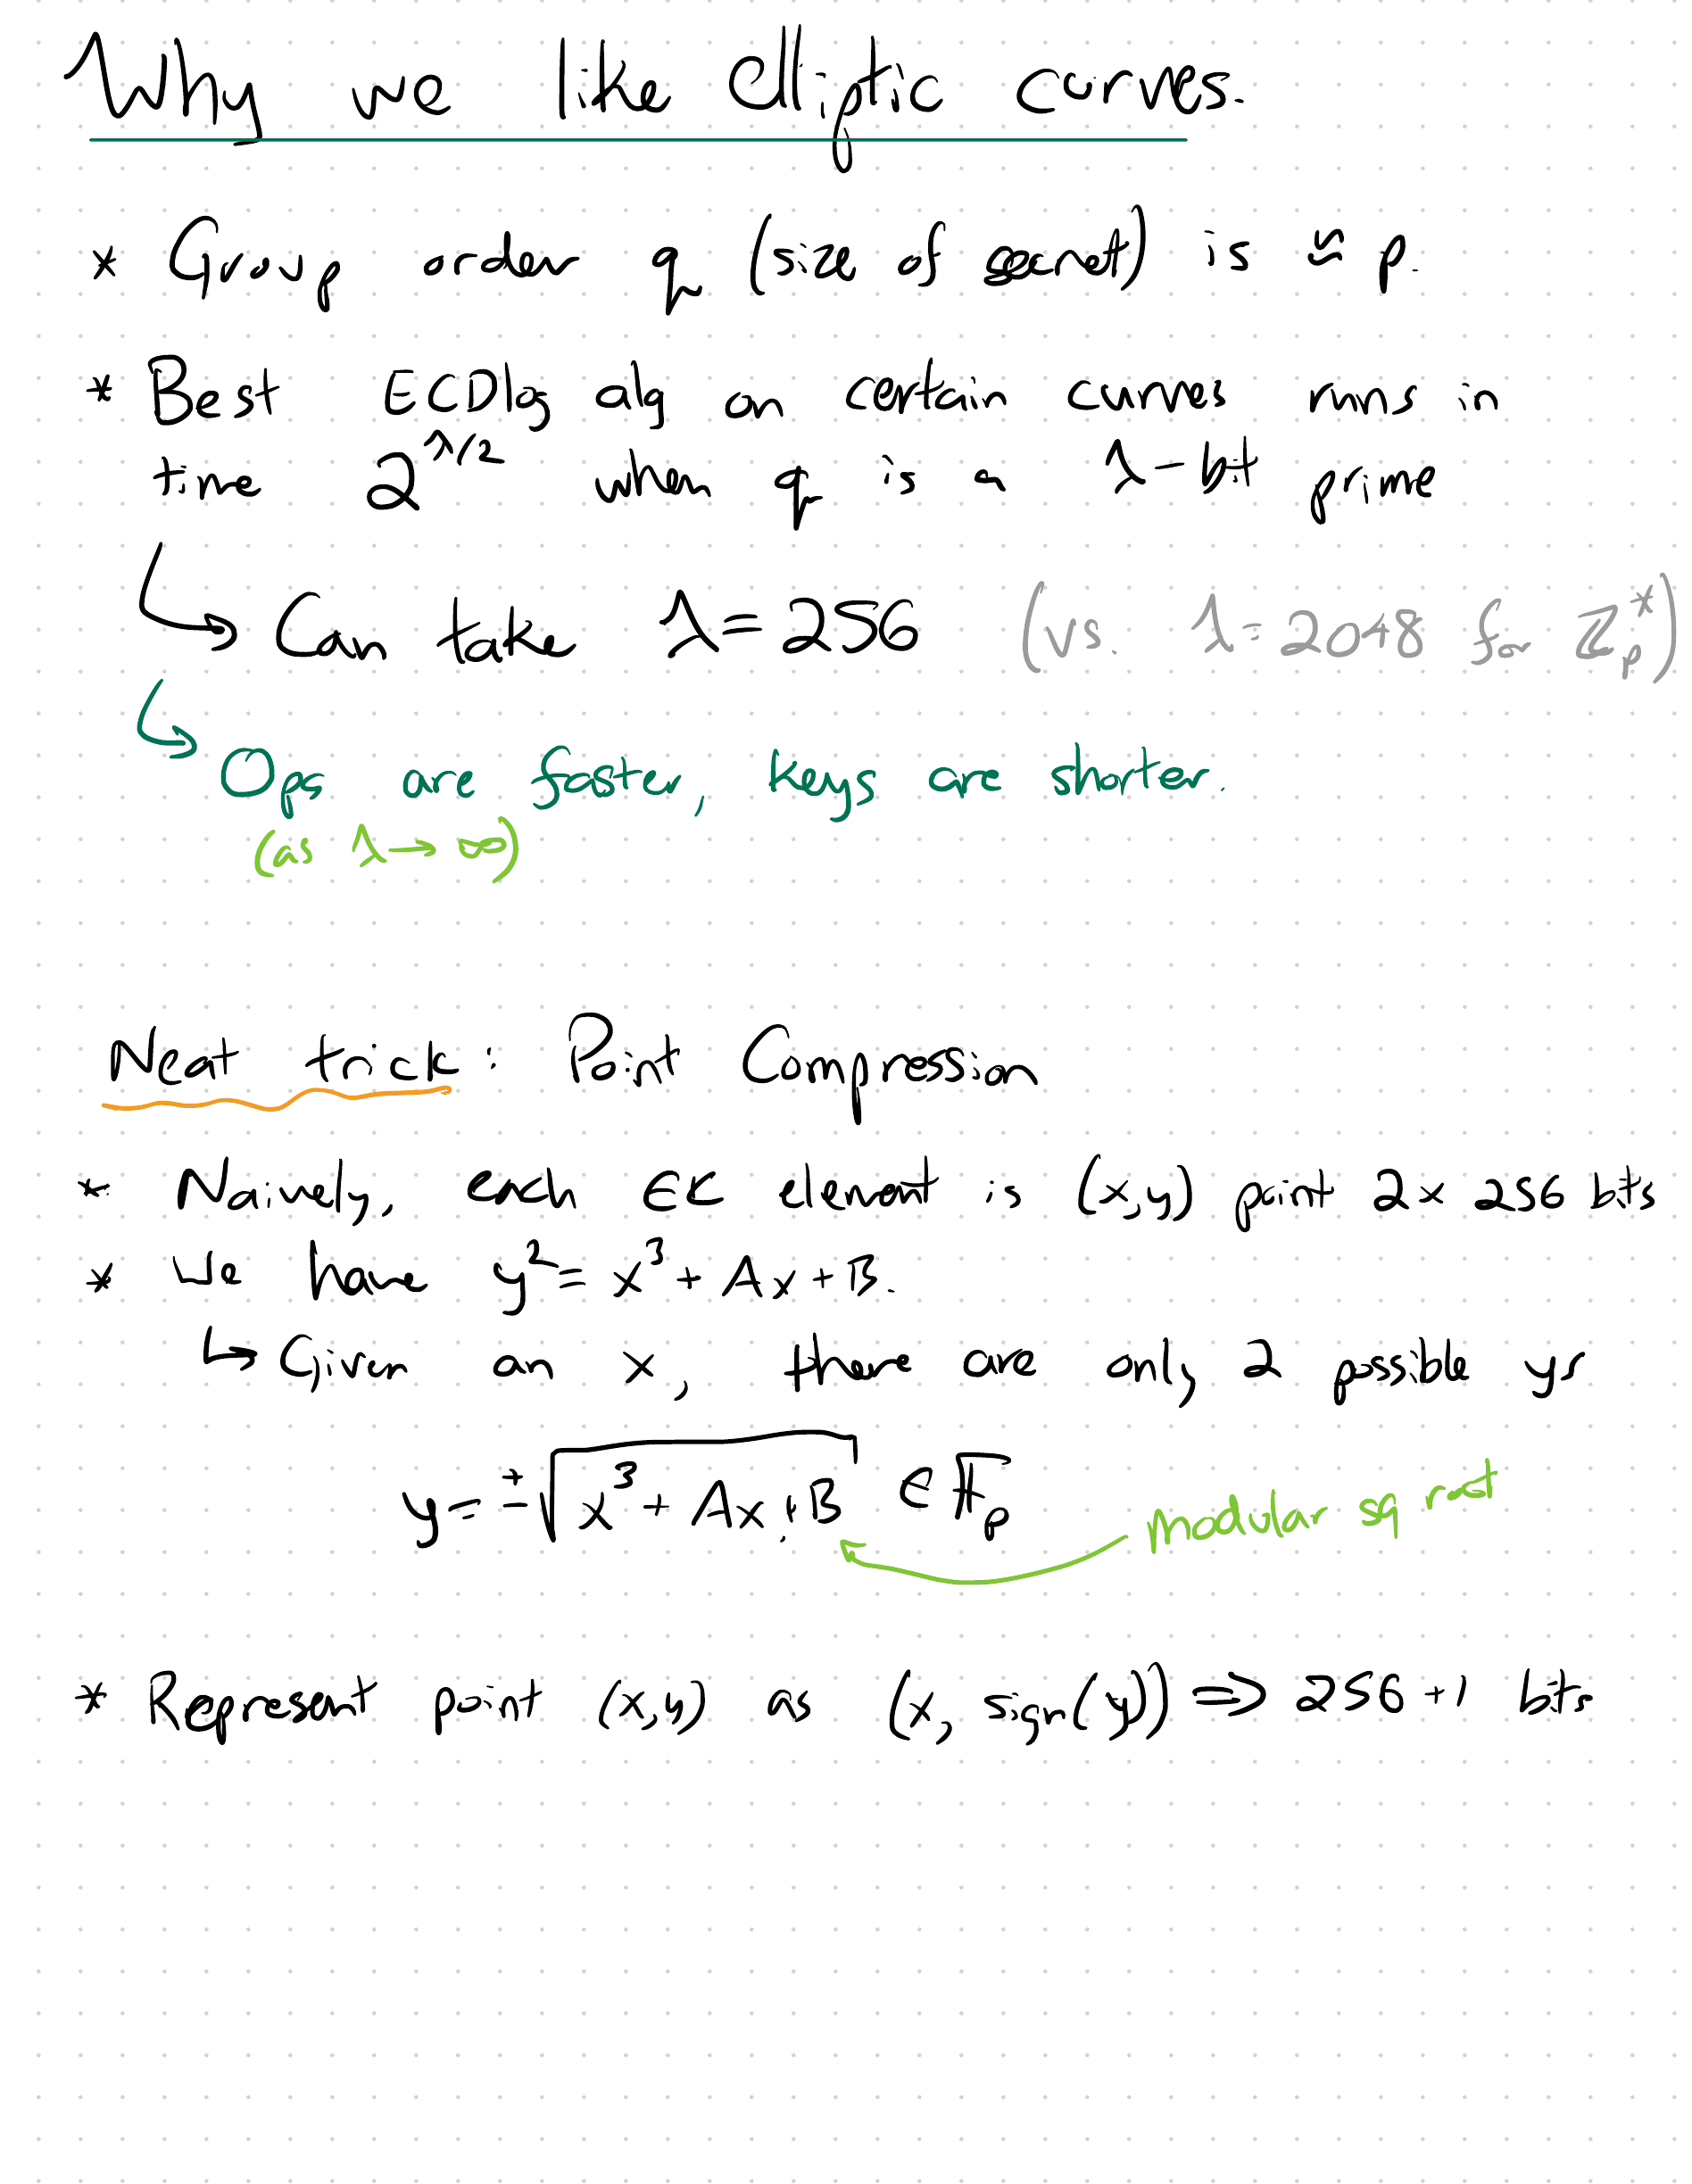 Why we like elliptic curves.
* Group order q (size of secret) is ≈ p.
* Best ECDlog alg on certain curves runs in
time 2^{λ/2} when q is a λ-bit prime
↳ Can take λ=256 (vs. λ=2048 for ℤ_p^*)
↳ Ops are faster, keys are shorter.
(as λ→∞)
Neat trick: Point Compression
* Naively, each EC element is (x,y) point 2 x 256 bits
* We have y² = x³ + Ax + B.
↳ Given an x, there are only 2 possible ys
y = ±√(x³ + Ax + B) ∈ 𝔽_p
modular sq root
* Represent point (x,y) as (x, sign(y)) ⇒ 256 + 1 bits